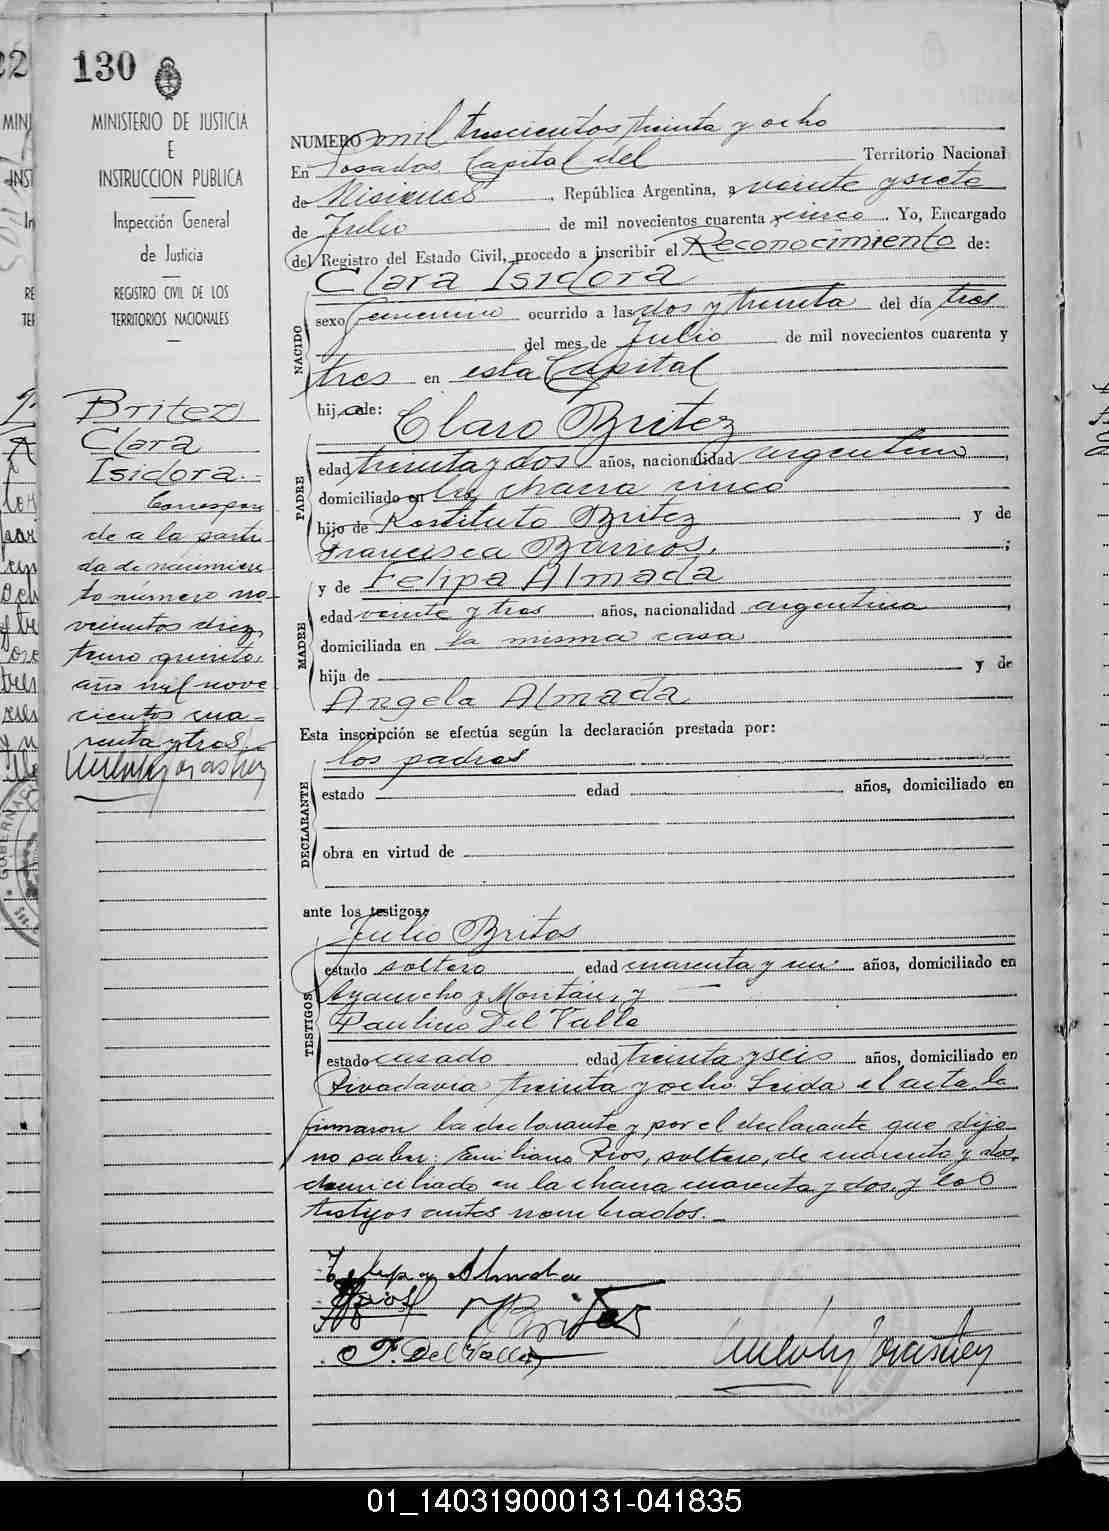 130
MINISTERIO DE JUSTICIA
E
INSTRUCCION PUBLICA
Inspección General
de Justicia
REGISTRO CIVIL DE LOS
TERRITORIOS NACIONALES
Britez
Clara
Isidora.
Correspon
de a la parti
da de nacimien
to número no
vecientos diez
tomo quinto,
año mil nove
cientos cua-
renta y tres.
NUMERO mil trescientos treinta y ocho
En Posadas Capital del Territorio Nacional
de Misiones, República Argentina, a veinte y siete
de Julio de mil novecientos cuarenta y cinco. Yo, Encargado
del Registro del Estado Civil, procedo a inscribir el Reconocimiento de:
Clara Isidora
NACIDO
sexo femenino ocurrido a las dos y treinta del día tres
del mes de Julio de mil novecientos cuarenta y
tres en esta Capital
hija de:
Claro Britez
PADRE
edad treinta y dos años, nacionalidad argentino,
domiciliado en la chacra cinco
hijo de Restituto Britez y de
Francisca Barrios, ;
y de Felipa Almada
MADRE
edad veinte y tres años, nacionalidad argentina,
domiciliada en la misma casa
hija de y de
Angela Almada
Esta inscripción se efectúa según la declaración prestada por:
los padres
DECLARANTE
estado edad años, domiciliado en
obra en virtud de
ante los testigos:
Julio Britos
TESTIGOS
estado soltero edad cuarenta y un años, domiciliado en
Ayacucho y y
Paulino Del Valle
estado casado edad treinta y seis años, domiciliado en
Rivadavia treinta y ocho Leida el acta la
firmaron la declarante y por el declarante que dijo
no saber: Emiliano Rios, soltero, de cuarenta y dos,
domiciliado en la chacra cuarenta y dos, y los
testigos antes nombrados.
Felipa Almada
E Rios
J Britos
P. Del Valle
01_140319000131-041835